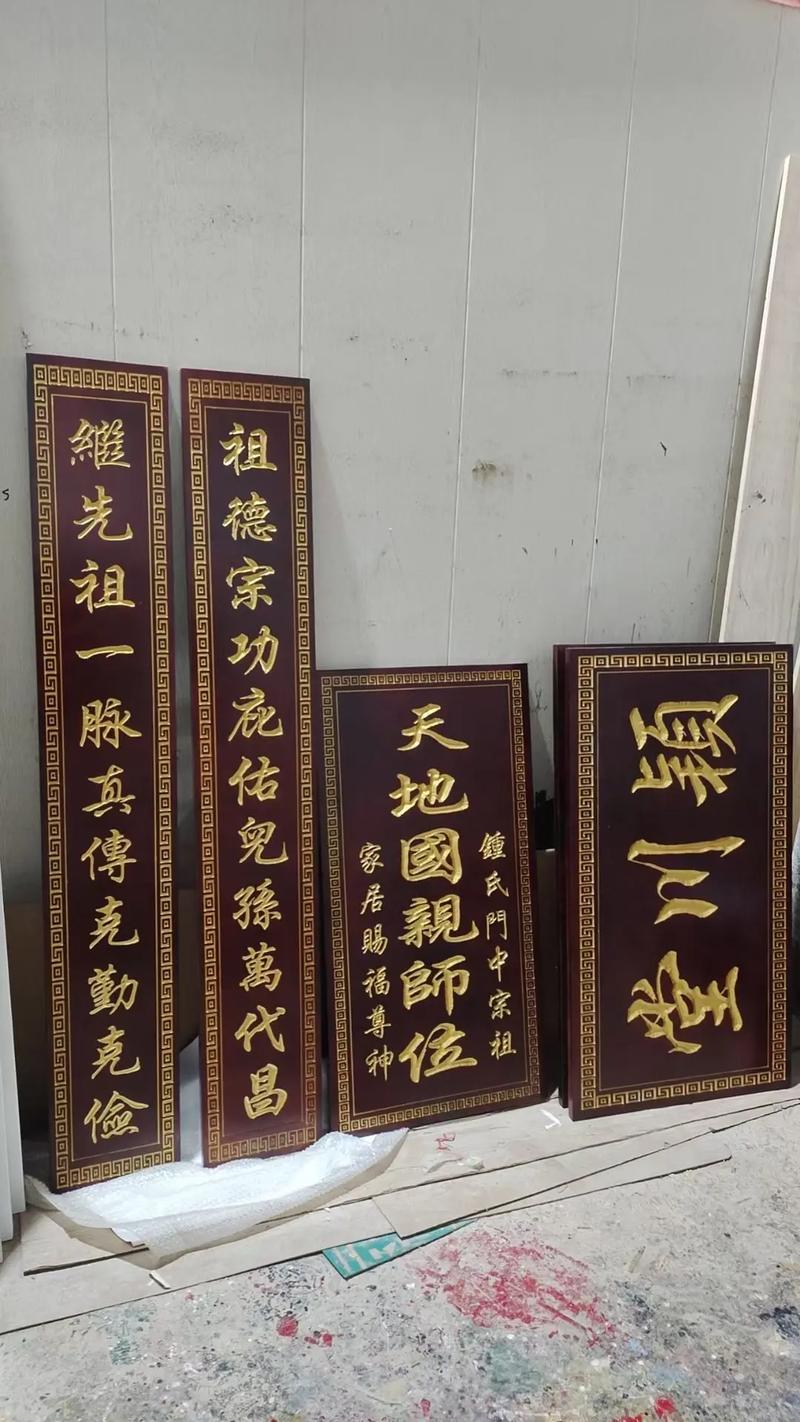 繼先祖一脈真傳克勤克儉
祖德宗功庇佑兒孫萬代昌
鍾氏門中宗祖
天地國親師位
家居賜福尊神
穎川堂